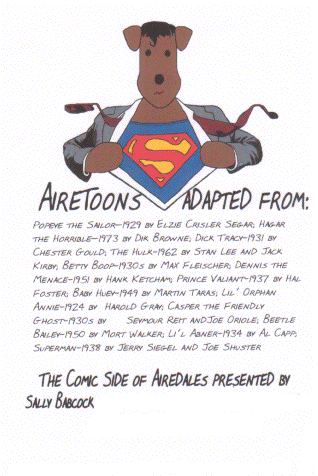 AIRETOONS ADAPTED FROM:
POPEYE THE SAILOR-1929 BY ELZIE CRISLER SEGAR; HAGAR
THE HORRIBLE-1973 BY DIK BROWNE; DICK TRACY-1931 BY
CHESTER GOULD; THE HULK-1962 BY STAN LEE AND JACK
KIRBY; BETTY BOOP-1930S BY MAX FLEISCHER; DENNIS THE
MENACE-1951 BY HANK KETCHAM; PRINCE VALIANT-1937 BY HAL
FOSTER; BABY HUEY-1949 BY MARTIN TARAS; LIL' ORPHAN
ANNIE-1924 BY HAROLD GRAY; CASPER THE FRIENDLY
GHOST-1930S BY SEYMOUR REIT AND JOE ORIOLE; BEETLE
BAILEY-1950 BY MORT WALKER; LI'L ABNER-1934 BY AL CAPP;
SUPERMAN-1938 BY JERRY SIEGEL AND JOE SHUSTER
THE COMIC SIDE OF AIREDALES PRESENTED BY
SALLY BABCOCK